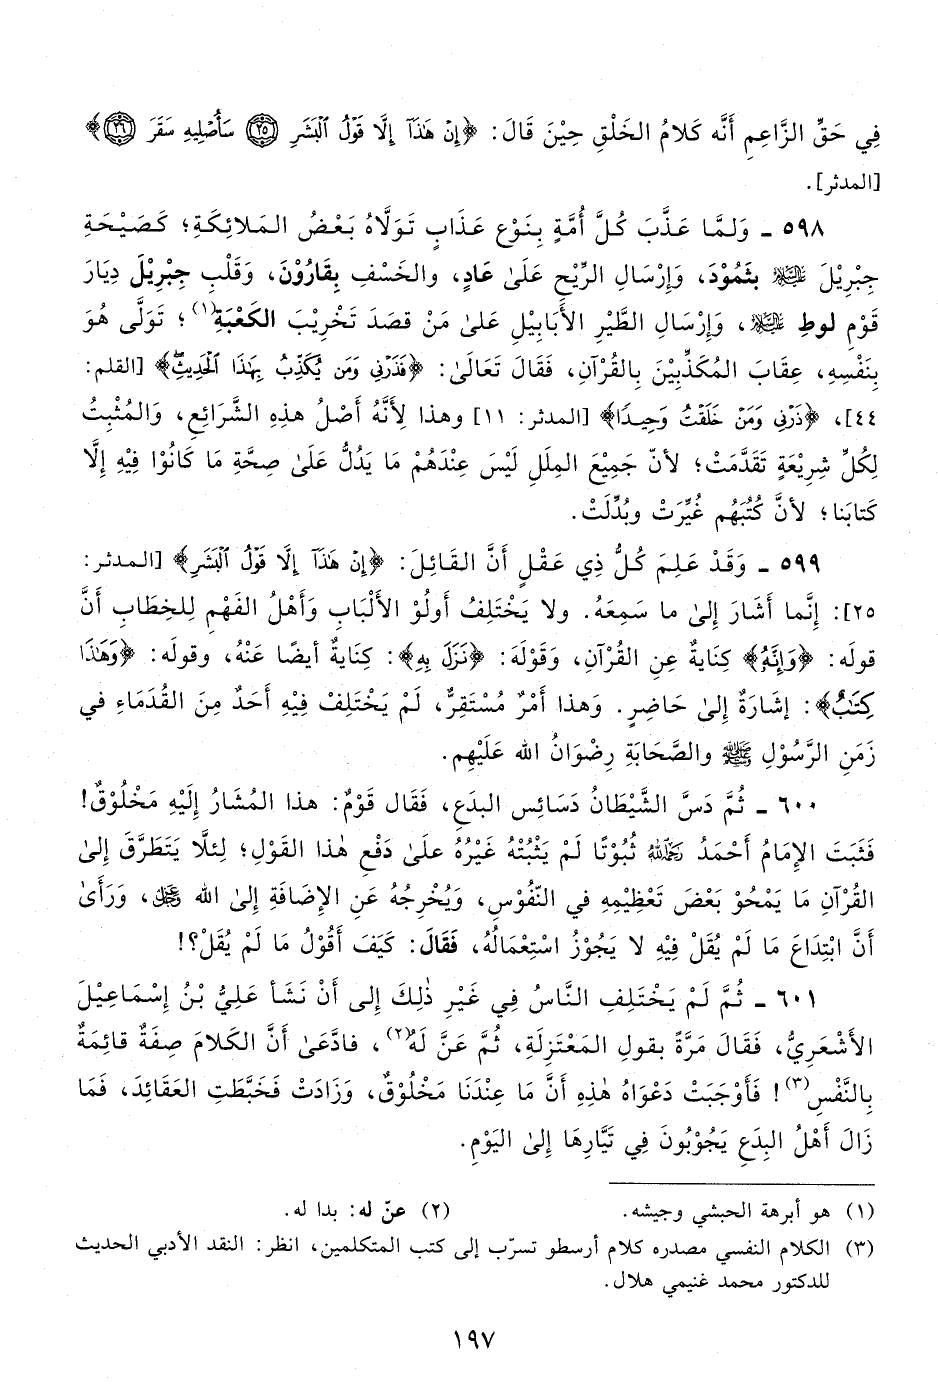 فِي حَقِّ الزَّاعِمِ أَنَّه كَلامُ الخَلْقِ حِيْنَ قَالَ: ﴿إِنْ هَٰذَآ إِلَّا قَوْلُ ٱلْبَشَرِ ۝٢٥ سَأُصْلِيهِ سَقَرَ ۝٢٦﴾
[المدثر].
٥٩٨ ـ وَلمَّا عَذَّبَ كُلَّ أُمَّةٍ بِنَوْعِ عَذَابٍ تَوَلَّاهُ بَعْضُ المَلائِكَةِ؛ كَصَيْحَةِ
جِبْرِيْلَ عليه السلام بثَمُوْدَ، وَإِرْسَالِ الرِّيْحِ عَلَىٰ عَادٍ، والخَسْفِ بِقَارُوْنَ، وَقَلْبِ جِبْرِيْلَ دِيَارَ
قَوْمِ لوطٍ عليه السلام، وَإِرْسَالِ الطَّيْرِ الأَبَابِيْلِ عَلىٰ مَنْ قصَدَ تَخْرِيْبَ الكَعْبَةِ(١)؛ تَوَلَّى هُوَ
بِنَفْسِهِ، عِقَابَ المُكَذِّبِيْنَ بِالقُرْآنِ، فَقَالَ تَعَالَىٰ: ﴿فَذَرْنِى وَمَن يُكَذِّبُ بِهَٰذَا ٱلْحَدِيثِ﴾ [القلم:
٤٤]، ﴿ذَرْنِى وَمَنْ خَلَقْتُ وَحِيدًا﴾ [المدثر: ١١] وهذا لِأَنَّهُ أَصْلُ هذِهِ الشَّرَائِعِ، وَالمُثْبِتُ
لِكُلِّ شَرِيْعَةٍ تَقَدَّمَتْ؛ لأنّ جَمِيْعَ المِلَلِ لَيْسَ عِنْدَهُمْ مَا يَدُلُّ عَلَىٰ صِحَّةِ مَا كَانُوْا فِيْهِ إِلَّا
كتَابَنا؛ لأنَّ كُتُبَهُم غُيِّرَتْ وبُدِّلَتْ.
٥٩٩ ـ وَقَدْ عَلِمَ كُلُّ ذِي عَقْلٍ أَنَّ القَائِلَ: ﴿إِنْ هَٰذَآ إِلَّا قَوْلُ ٱلْبَشَرِ﴾ [المدثر:
٢٥]: إِنَّما أَشَارَ إِلىٰ ما سَمِعَهُ. ولا يَخْتَلِفُ أولُوْ الأَلْبَابِ وَأَهْلُ الفَهْمِ لِلخِطَابِ أنَّ
قولَه: ﴿وَإِنَّهُۥ﴾ كِنَايَةٌ عِنِ القُرْآنِ، وَقَوْلَهَ: ﴿نَزَلَ بِهِ﴾: كِنَايةٌ أيضًا عَنْهُ، وقولَه: ﴿وَهَٰذَا
كِتَٰبٌ﴾: إشارَةٌ إِلىٰ حَاضِرٍ. وَهذا أَمْرٌ مُسْتَقِرٌّ، لَمْ يَخْتَلِفْ فِيْهِ أَحَدٌ مِنَ القُدَمَاءِ في
زَمَنِ الرَّسُوْلِ ﷺ والصَّحَابَةِ رِضْوَانُ الله عَلَيْهِم.
٦٠٠ ـ ثُمَّ دَسَّ الشَّيْطَانُ دَسَائِس البدَعِ، فَقَال قَوْمٌ: هذا المُشَارُ إِلَيْهِ مَخْلُوْقٌ!
فَثَبَتَ الإِمَامُ أَحْمَدُ رحمه الله ثُبُوْتًا لَمْ يَثْبُتْهُ غَيْرُهُ عَلىٰ دَفْعِ هٰذا القَوْلِ؛ لِئلَّا يَتَطَرَّقَ إِلىٰ
القُرْآنِ مَا يَمْحُوْ بَعْضَ تَعْظِيْمِهِ في النّفُوْسِ، وَيُخْرِجُهُ عَنِ الإِضَافَةِ إِلىٰ الله عز وجل، وَرَأَىٰ
أَنَّ ابْتِدَاعَ مَا لَمْ يُقَلْ فِيْهِ لا يَجُوْزُ اسْتِعْمَالُهُ، فَقَالَ: كَيْفَ أقُوْلُ مَا لَمْ يُقَلْ؟!
٦٠١ ـ ثُمَّ لَمْ يَخْتَلِفِ النَّاسُ فِي غَيْرِ ذٰلِكَ إِلى أَنْ نَشَأ عَلِيُّ بْنُ إِسْمَاعِيْلَ
الأَشْعَرِيُّ، فَقَالَ مَرَّةً بقولِ المُعْتَزِلَةِ، ثُمَّ عَنَّ لَهُ(٢)، فادَّعَىٰ أَنَّ الكَلامَ صِفَةٌ قائِمَةٌ
بِالنَّفْسِ(٣)! فَأَوْجَبَتْ دَعْوَاهُ هٰذِهِ أَنَّ مَا عِنْدَنَا مَخْلُوْقٌ، وَزَادَتْ فَخَبَّطَتِ العَقَائِدَ، فَمَا
زَالَ أَهْلُ البِدَعِ يَجُوْبُونَ فِي تَيَّارِهَا إِلىٰ اليَوْمِ.
(١) هو أبرهة الحبشي وجيشه. (٢) عنّ له: بدا له.
(٣) الكلام النفسي مصدره كلام أرسطو تسرّب إلى كتب المتكلمين، انظر: النقد الأدبي الحديث
للدكتور محمد غنيمي هلال.
١٩٧